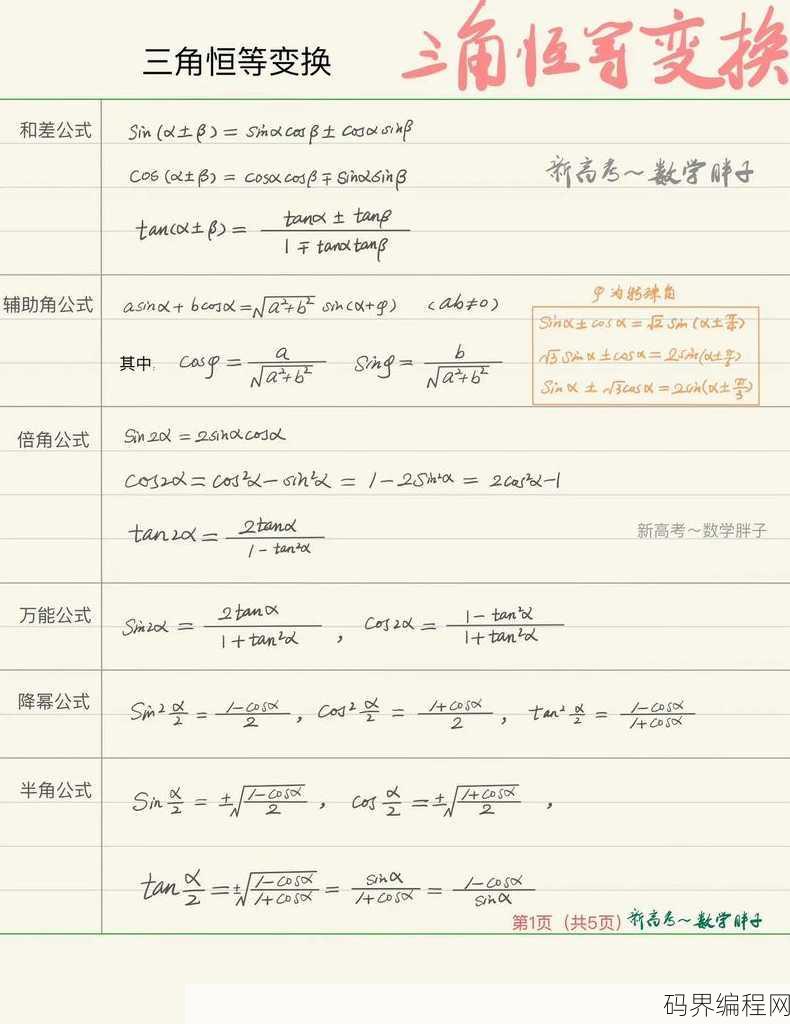 三角恒等变换
三角恒等变换
和差公式
sin(α±β) = sinαcosβ ± cosαsinβ
新高考～数学胖子
cos(α±β) = cosαcosβ ∓ sinαsinβ
tan(α±β) = (tanα ± tanβ)/(1 ∓ tanαtanβ)
辅助角公式
asinα + bcosα = √(a²+b²) sin(α+φ) (ab≠0)
其中: cosφ = a/√(a²+b²) sinφ = b/√(a²+b²)
φ为特殊角
sinα ± cosα = √2 sin(α±π/4)
√3 sinα ± cosα = 2sin(α±π/6)
sinα ± √3cosα = 2sin(α±π/3)
倍角公式
sin2α = 2sinαcosα
cos2α = cos²α − sin²α = 1 − 2sin²α = 2cos²α − 1
tan2α = 2tanα/(1 − tan²α)
新高考～数学胖子
万能公式
sin2α = 2tanα/(1 + tan²α) , cos2α = (1 − tan²α)/(1 + tan²α)
降幂公式
sin² α/2 = (1−cosα)/2 , cos² α/2 = (1+cosα)/2 , tan² α/2 = (1−cosα)/(1+cosα)
半角公式
sin α/2 = ±√((1−cosα)/2) , cos α/2 = ±√((1+cosα)/2) ,
tan α/2 = ±√((1−cosα)/(1+cosα)) = sinα/(1+cosα) = (1−cosα)/sinα
第1页（共5页）新高考～数学胖子
码界编程网